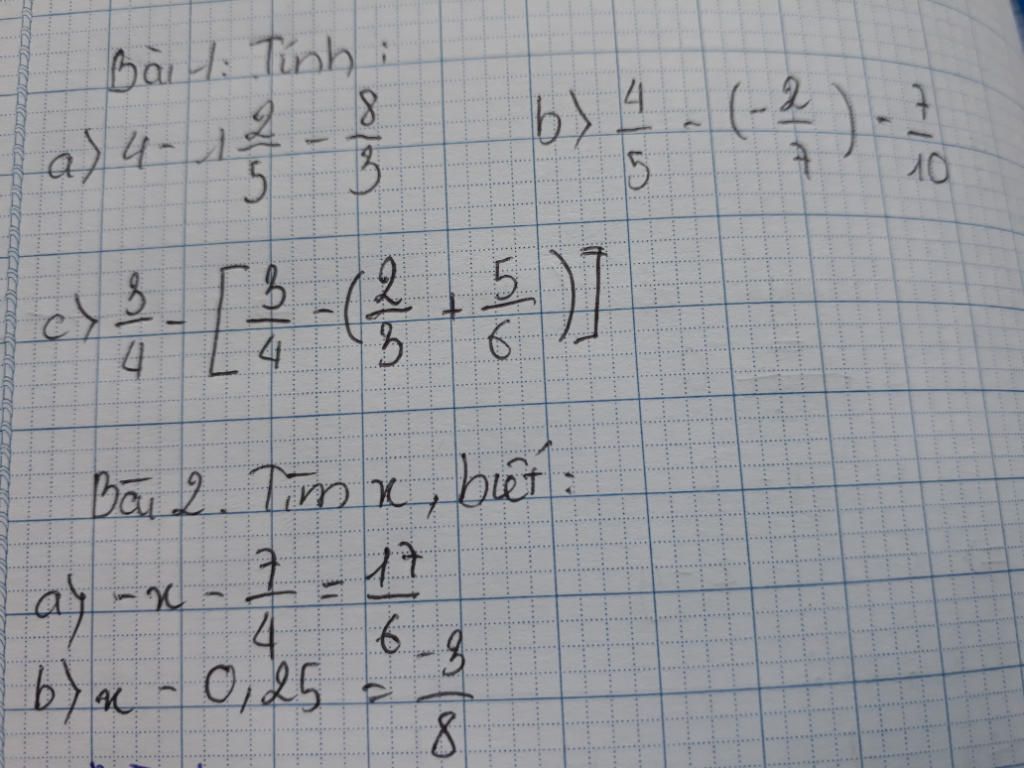 Bài 1: Tính:
a) 4 - 1 2/5 - 8/3 b) 4/5 - (-2/7) - 7/10
c) 3/4 - [3/4 - (2/3 + 5/6)]
Bài 2. Tìm x, biết:
a) -x - 7/4 = 17/6
b) x - 0,25 = -3/8